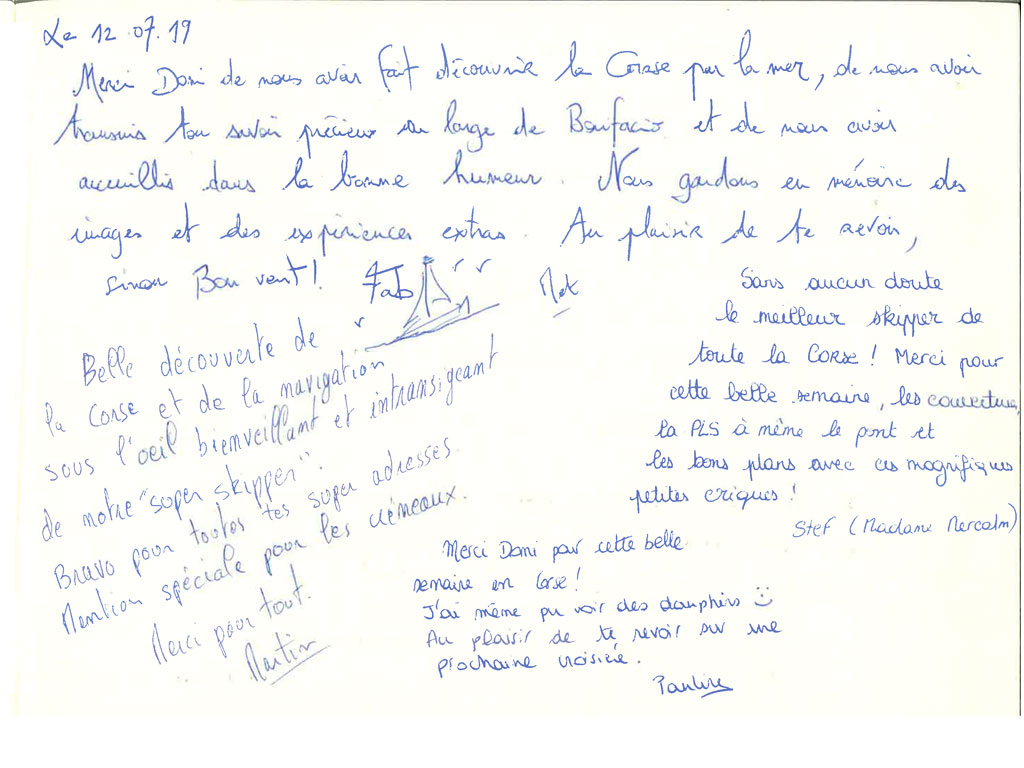 Le 12.07.19
Merci Domi de nous avoir fait découvrir la Corse par la mer, de nous avoir
transmis ton savoir précieux au large de Bonifacio et de nous avoir
accueillis dans la bonne humeur. Nous gardons en mémoire des
images et des expériences extras. Au plaisir de te revoir,
sinon Bon vent! Fab
Belle découverte de
la Corse et de la navigation
sous l'oeil bienveillant et intransigeant
de notre "super skipper".
Bravo pour toutes tes super adresses.
Mention spéciale pour les créneaux.
Merci pour tout.
Martin
Sans aucun doute
le meilleur skipper de
toute la Corse ! Merci pour
cette belle semaine, les couvertures,
la PLS à même le pont et
les bons plans avec ces magnifiques
petites criques !
Stef (Madame Mercalm)
Merci Domi pour cette belle
semaine en Corse !
J'ai même pu voir des dauphins :)
Au plaisir de te revoir sur une
prochaine croisière.
Pauline